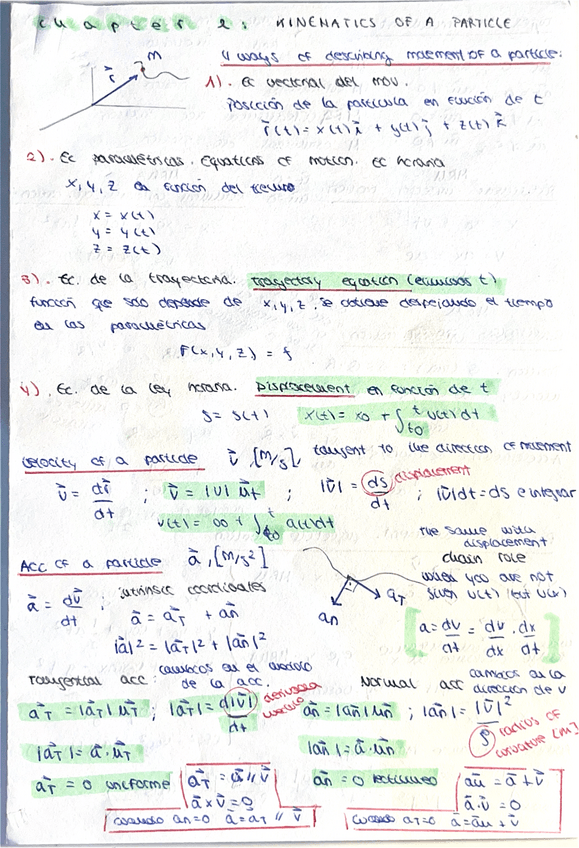 Chapter 1: KINEMATICS OF A PARTICLE
4 ways of describing movement of a particle:
m
r⃗
1). Ec vectorial del mov.
Posición de la partícula en función de t
r⃗(t) = x(t) i⃗ + y(t) j⃗ + z(t) k⃗
2). Ec paramétricas. Equations of motion. Ec horaria
x, y, z en función del tiempo
x = x(t)
y = y(t)
z = z(t)
3). Ec. de la trayectoria. Trajectory equation (eliminamos t)
función que solo depende de x, y, z. se obtiene despejando el tiempo
en las paramétricas
F(x, y, z) = f
4). Ec. de la ley horaria. Displacement en función de t
s = s(t) x(t) = x0 + ∫t0^t v(t) dt
Velocity of a particle v⃗, [m/s], tangent to the direction of movement
v⃗ = dr⃗/dt ; v⃗ = |v| u⃗t ; |v⃗| = ds/dt displacement ; |v⃗|dt = ds e integrar
v(t) = v0 + ∫t0^t a(t) dt
the same with
displacement
Acc of a particle a⃗, [m/s²]
chain rule
when you are not
given v(t) but v(x)
a⃗ = dv⃗/dt ; intrinsic coordinates
a⃗ = a⃗T + a⃗n
aT
an
[a = dv/dt = dv/dx · dx/dt]
|a|² = |a⃗T|² + |a⃗n|²
Tangential acc: cambios en el modulo
de la acc.
Normal acc cambios en la
dirección de v
a⃗T = |a⃗T| u⃗T ; |a⃗T| = d|v⃗|/dt derivada modulo
a⃗n = |a⃗n| u⃗n ; |a⃗n| = |v⃗|²/ρ radius of
curvature [m]
|a⃗T| = a⃗ · u⃗T
|a⃗n| = a⃗ · u⃗n
a⃗T = 0 uniforme
a⃗T = a⃗ // v⃗
a⃗ x v⃗ = 0
cuando an=0 a⃗ = a⃗T // v⃗
a⃗n = 0 rectilineo
a⃗n = a⃗ ⊥ v⃗
a⃗ · v⃗ = 0
cuando aT=0 a⃗ = a⃗n ⊥ v⃗